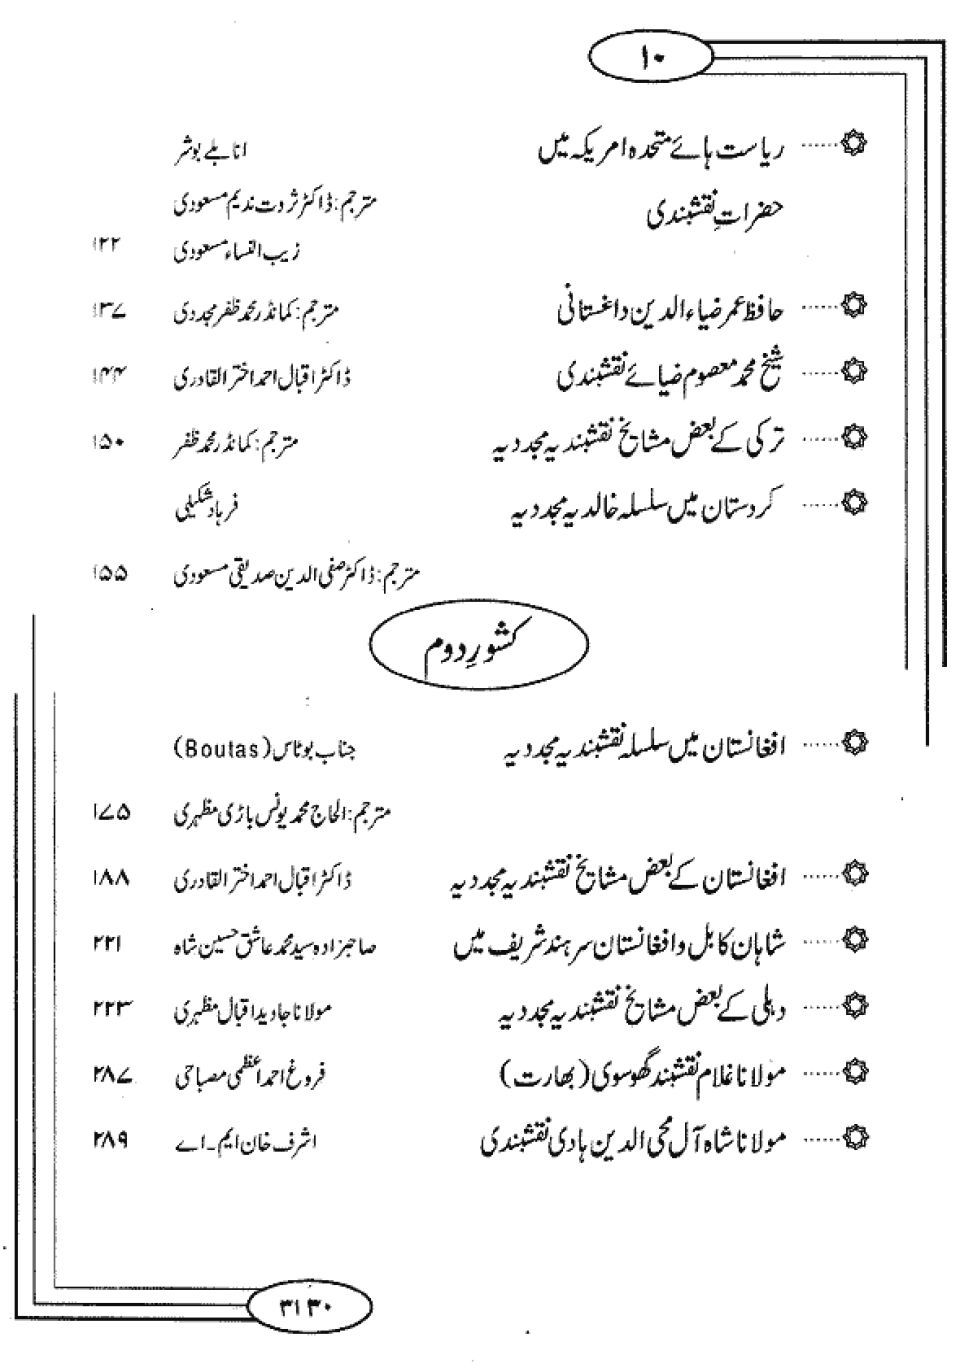 ۱۰
ریاست ہائے متحدہ امریکہ میں انابلے بوشر
حضراتِ نقشبندی مترجم: ڈاکٹر ثروت ندیم مسعودی
زیب النساء مسعودی ۱۲۲
حافظ عمر ضیاء الدین داغستانی مترجم: کمانڈر محمد ظفر مجددی ۱۳۷
شیخ محمد معصوم ضیائے نقشبندی ڈاکٹر اقبال احمد اختر القادری ۱۴۴
ترکی کے بعض مشایخ نقشبندیہ مجددیہ مترجم: کمانڈر محمد ظفر ۱۵۰
کردستان میں سلسلہ خالدیہ مجددیہ فرہاد شکیلی
مترجم: ڈاکٹر صفی الدین صدیقی مسعودی ۱۵۵
کشورِ دوم
افغانستان میں سلسلہ نقشبندیہ مجددیہ جناب بوٹاس (Boutas)
مترجم: الحاج محمد یونس باڑی مظہری ۱۷۵
افغانستان کے بعض مشایخ نقشبندیہ مجددیہ ڈاکٹر اقبال احمد اختر القادری ۱۸۸
شاہان کابل و افغانستان سرہند شریف میں صاحبزادہ سید محمد عاشق حسین شاہ ۲۲۱
دہلی کے بعض مشایخ نقشبندیہ مجددیہ مولانا جاوید اقبال مظہری ۲۲۳
مولانا غلام نقشبند گھوسوی (بھارت) فروغ احمد اعظمی مصباحی ۲۸۷
مولانا شاہ آل محی الدین ہادی نقشبندی اشرف خان ایم۔اے ۲۸۹
۳۱۳۰